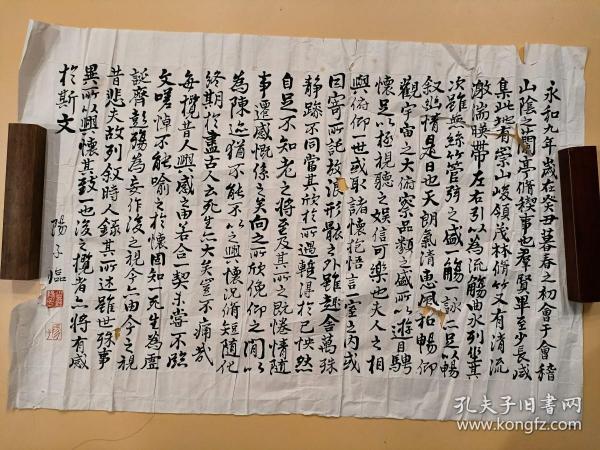 永和九年歲在癸丑暮春之初會于會稽
山陰之蘭亭脩稧事也羣賢畢至少長咸
集此地有崇山峻領茂林脩竹又有清流
激湍暎帶左右引以為流觴曲水列坐其
次雖無絲竹管弦之盛一觴一詠亦足以暢
叙幽情是日也天朗氣清惠風和暢仰
觀宇宙之大俯察品類之盛所以遊目騁
懷足以極視聽之娛信可樂也夫人之相
與俯仰一世或取諸懷抱悟言一室之內或
因寄所託放浪形骸之外雖趣舍萬殊
静躁不同當其欣於所遇輙得於己怏然
自足不知老之將至及其所之既惓情隨
事遷感慨係之矣向之所欣俛仰之間以
為陳迹猶不能不以之興懷況脩短隨化
終期於盡古人云死生亦大矣豈不痛哉
每攬昔人興感之由若合一契未嘗不臨
文嗟悼不能喻之於懷固知一死生為虛
誕齊彭殤為妄作後之視今亦由今之視
昔悲夫故列叙時人錄其所述雖世殊事
異所以興懷其致一也後之攬者亦將有感
於斯文
陽子臨
孔夫子旧书网
www.kongfz.com